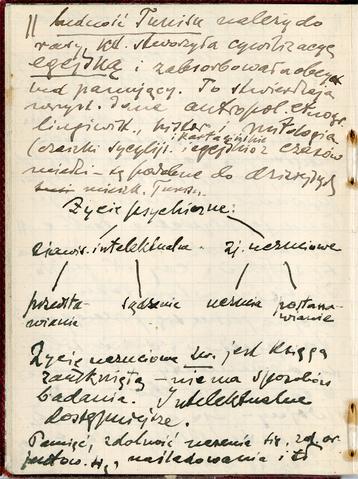 || Ludność Tunisu należy do
rasy, kt. stworzyła cywilizację
egejską i zabsorbowała
lud panujący. To stwierdzają
wszyst. dane antropol. etnogr.
lingwist., histor., mitologia
kartagińskie
(czaszki sycylij. i egejskie z czasów
są podobne do dzisiejszych
mieszk. Tunisu.
Życie psychiczne:
zjawis. intelektualne. zj. uczuciowe
przedsta-
wianie sądzenie uczucia postana-
wianie
Życie uczuciowe zw. jest księgą
zamkniętą – nie ma sposobów
badania. Intelektualne
dostępniejsze.
Pamięć, zdolność uczenia się, zd. or
jentow. się, naśladowania i t.d